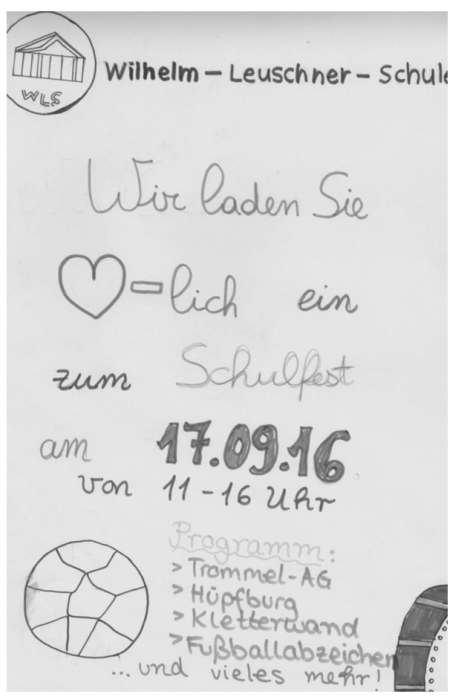 WLS
Wilhelm – Leuschner – Schule
Wir laden Sie
♡-lich ein
zum Schulfest
am 17.09.16
von 11-16 Uhr
Programm:
> Trommel-AG
> Hüpfburg
> Kletterwand
> Fußballabzeichen
...und vieles mehr!